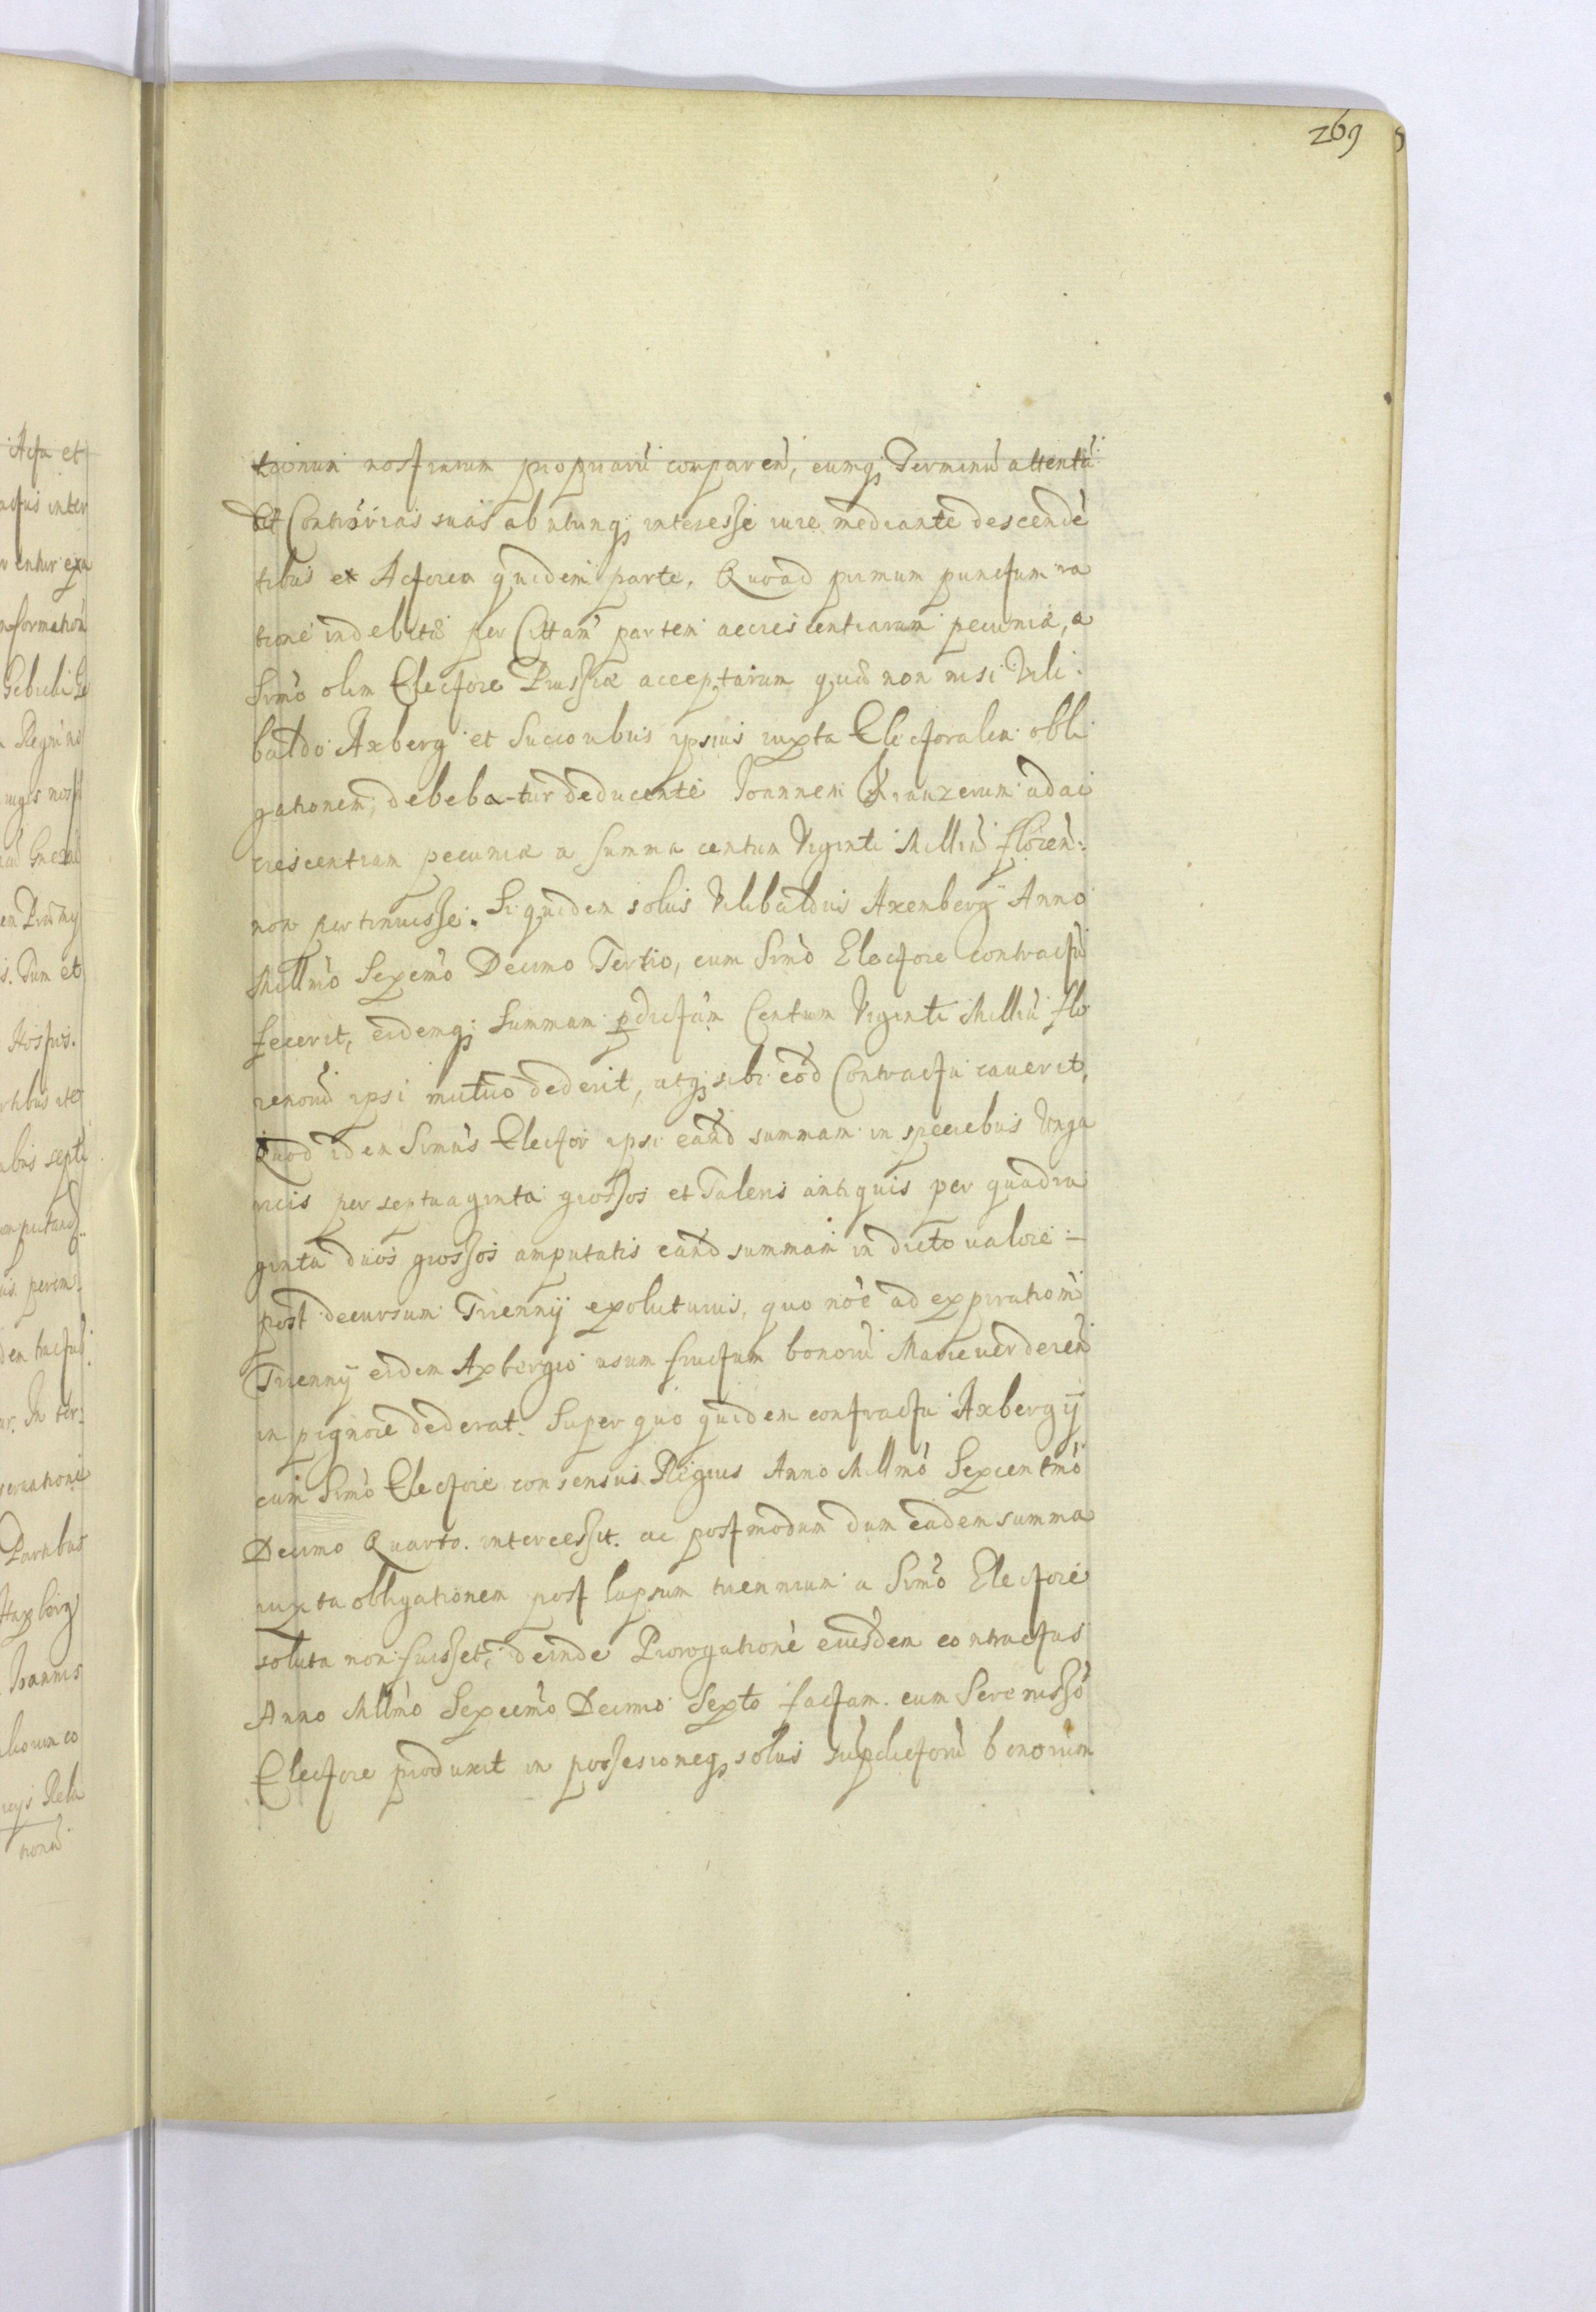 269
tionum nostrarum propriarū comparen̄, eumq3 Terminū attentā
Et Controv̄ias suas ab utunq3 interesse iure mediante descendē
tibus ex Actorea quidem parte, Quoad primum punctum ra
tione indebitæ per Cittam̄ partem accrescentiarum pecuniæ, a
Srm̄o olim Electore Prussiæ acceptarum quæ non nisi Vili
baldo Axberg et Succoribus ipsius iuxta Electoralem obli
gationem, debeba-tur deducente Joannem Kranzerum ad ac
crescentiam pecuniæ a summa centum Viginti Milliū floren̄:
non pertinuisse. Siquidem solus Vilibaldus Axenberg Anno
Millm̄o Sexcm̄o Decimo Tertio, cum Srm̄o Electore contractū
fecerit, eidemq3 Summam p̄dictam Centum Viginti Milliū flo
renorū ipsi mutuo dederit, atq3 sibi eōd Contractu caverit,
Quod idem Srm̄us Elector ipsi eand̄ summam in speciebus Unga
ricis per septuaginta grossos et Taleris antiquis per quadra
ginta duos grossos amputatis eand̄ summam in dicto valore =
post decursum Triennij exoluturus, quo nōe ad expirationē
Triennij eidem Axbergio usum fructum bonorū Marieuerderen̄
in pignore dederat. Super quo quidem contractu Axbergij
cum Srm̄o Electore consensus Regius Anno Millm̄o Sexcentm̄o
Decimo Quarto. intercessit. ac postmodum dum eadem summa
iuxta obligationem post lapsum triennium a Srm̄o Electore
soluta non fuisset, deinde Prorogationē eiusdem contractus
Anno Mllm̄o Sexcm̄o Decimo Sexto factam. cum Serenissō
Electore produxit in possesioneq3 solus sup̄dictorū bonorum